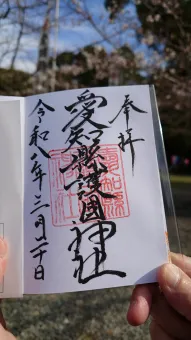 奉拝
愛知縣護國神社
令和八年三月二十日